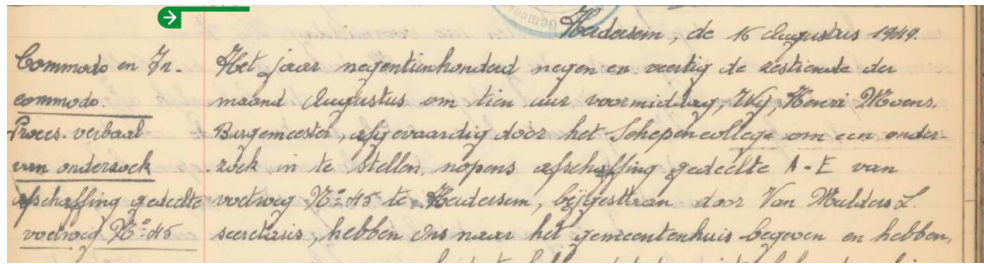 Heldersem, de 16 Augustus 1949.
Commodo en In-
commodo.
Proces-verbaal
van onderzoek
afschaffing gedeelte
voetweg N° 45
Het jaar negentienhonderd negen en veertig de zestiende der
maand Augustus om tien uur voormiddag, Wij, Henri Moens.
Burgemeester, afgevaardig door het Schepencollege om een onder-
zoek in te stellen, nopens afschaffing gedeelte A-E van
voetweg N° 45 te Heldersem, bijgestaan door Van Mulders L.
secretaris, hebben Ons naar het gemeentenhuis begeven en hebben,